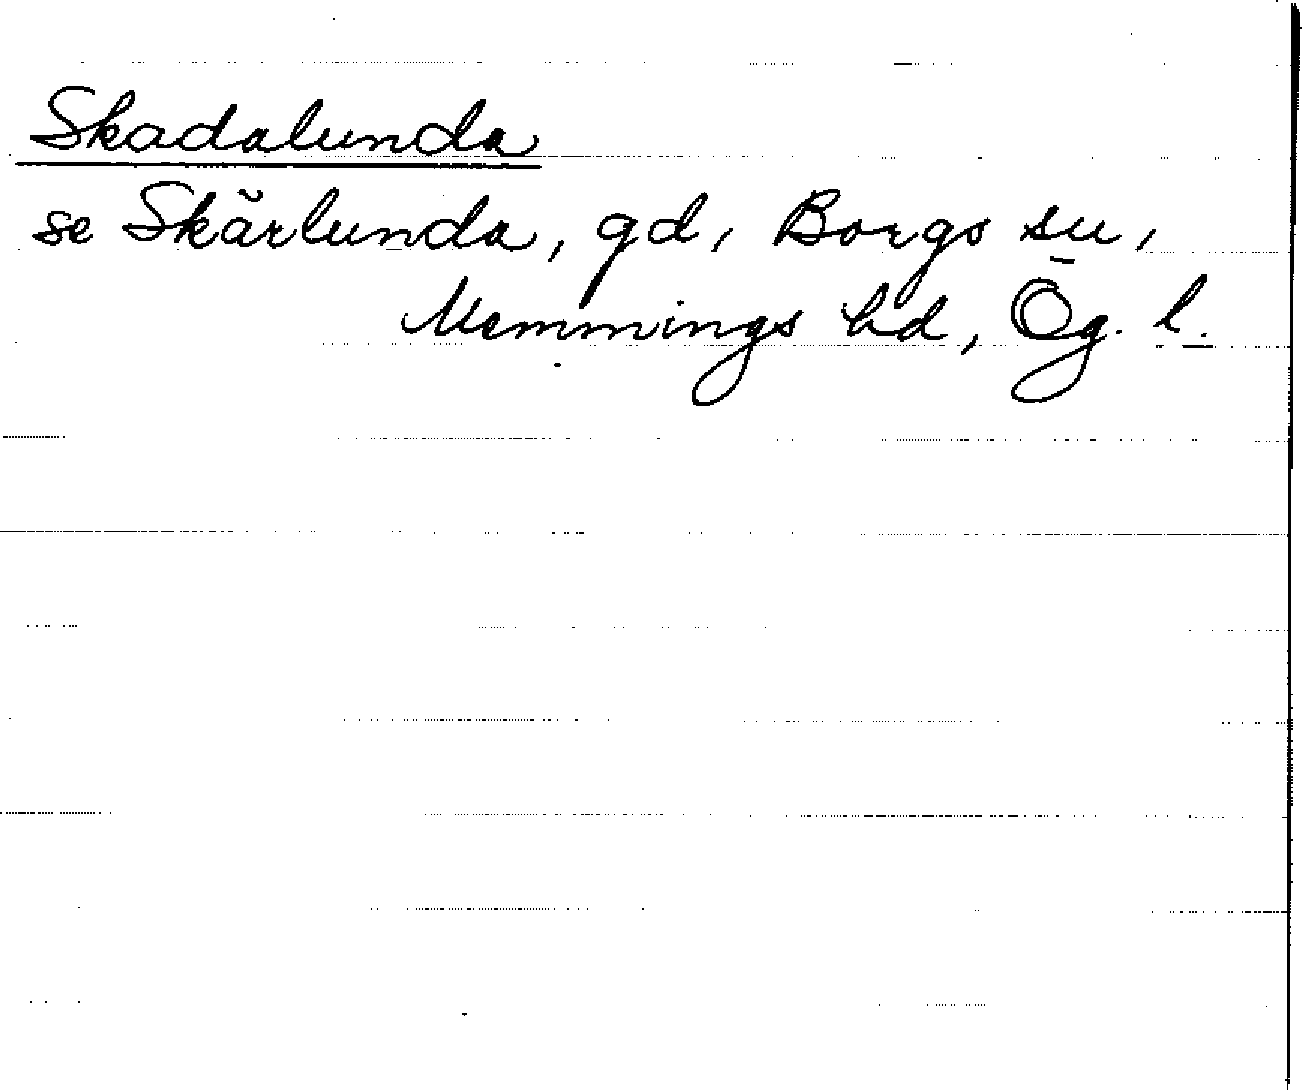 Skadalunda
se Skärlunda, gd, Borgs sn,
Memmings hd, Ög. l.